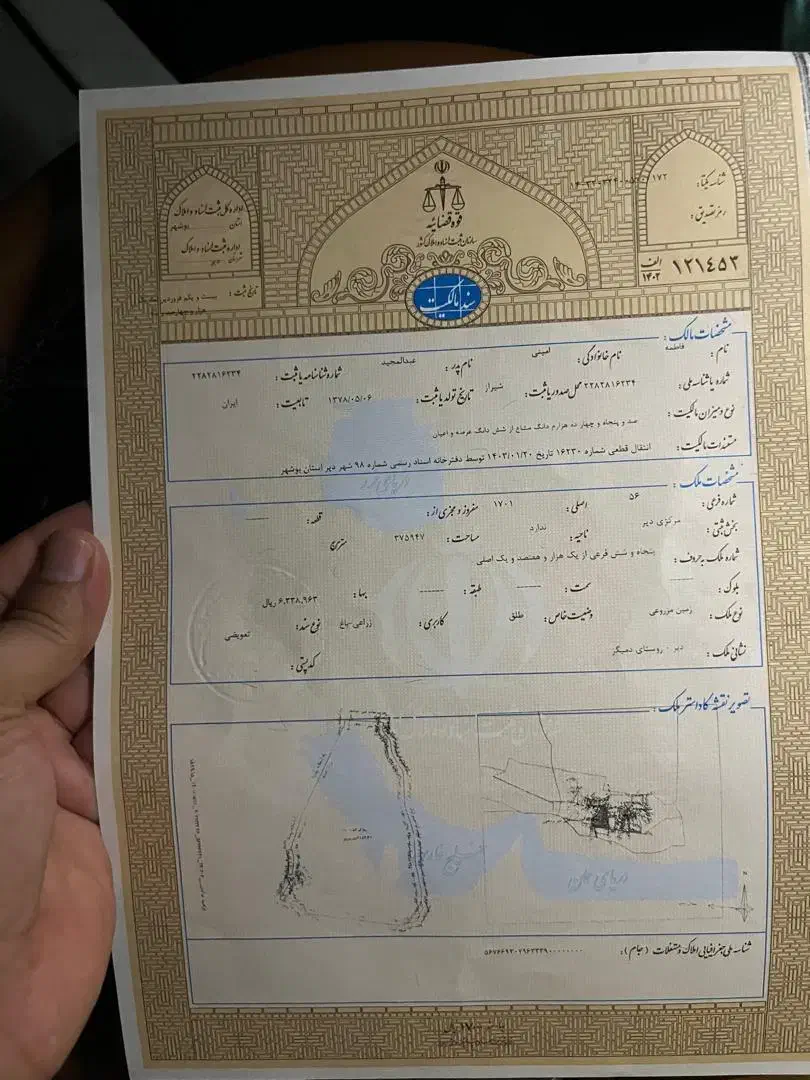 قوه قضائیه
سازمان ثبت اسناد و املاک کشور
سند مالکیت
شناسه یکتا:
رمز تصدیق:
الف ۱۴۰۲ ۱۲۱۴۵۳
اداره کل ثبت اسناد و املاک
استان بوشهر
اداره ثبت اسناد و املاک
تاریخ ثبت: بیست و یکم فروردین
مشخصات مالک:
نام: فاطمه نام خانوادگی: امینی نام پدر: عبدالمجید شماره شناسنامه یا ثبت: ۲۲۸۲۸۱۶۲۳۴
شماره یا شناسه ملی: ۲۲۸۲۸۱۶۲۳۴ محل صدور یا ثبت: شیراز تاریخ تولد یا ثبت: ۱۳۷۸/۰۵/۰۶ تابعیت: ایران
نوع و میزان مالکیت: صد و پنجاه و چهار ده هزارم دانگ مشاع از شش دانگ عرصه و اعیان
مستندات مالکیت: انتقال قطعی شماره ۱۶۲۳۰ تاریخ ۱۴۰۳/۰۱/۲۰ توسط دفترخانه اسناد رسمی شماره ۹۸ شهر دیر استان بوشهر
مشخصات ملک:
شماره فرعی: ۵۶ اصلی: ۱۷۰۱ مفروز و مجزی از: ------ قطعه: ------
بخش ثبتی: مرکزی دیر ناحیه: ندارد مساحت: ۳۷۵۹۴۷ مترمربع
شماره ملک به حروف: پنجاه و شش فرعی از یک هزار و هفتصد و یک اصلی
بلوک: ------ سمت: ------ طبقه: ------ بها: ۶,۳۳۸,۹۶۳ ریال
نوع ملک: زمین مزروعی وضعیت خاص: طلق کاربری: زراعی-باغ نوع سند: تعویضی
نشانی ملک: دیر - روستای دمیگز کد پستی:
تصویر نقشه کاداستر ملک:
دریای خزر
خلیج فارس
دریای عمان
N
شناسه ملی جغرافیایی املاک و مستغلات (جام):